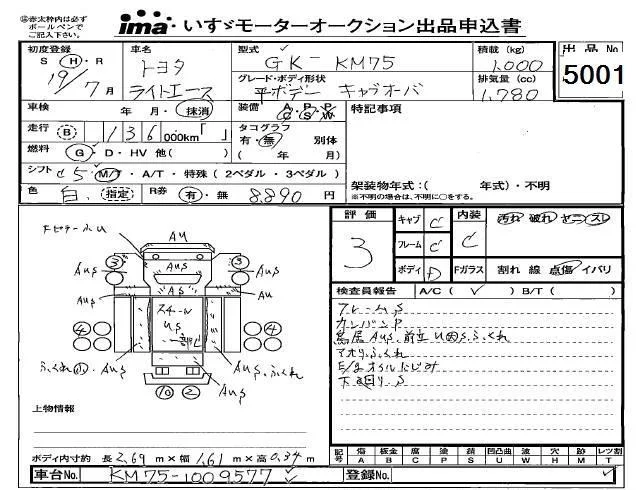 ㊟赤太枠内は必ず
ボールペンで
ご記入下さい。
ima いすゞモーターオークション出品申込書
初度登録
S H・R
19/7月
車名
トヨタ
ライトエース
型式
GK-KM75
グレード・ボディ形状
平ボデー キャブオーバ
積載(kg)
1,000
排気量(cc)
1,780
出品No
5001
車検 年・月・抹消
装備 A・P・P C S W
特記事項
走行 B 136 000km「 」
タコグラフ
有・無 別体
( 年 月)
燃料 G・D・HV 他( )
シフト C5 M/T・A/T・特殊(2ペダル・3ペダル)
架装物年式:( 年式)・不明
※不明の場合は、不明に○をする。
色 白 指定 R券 有・無 8,890円
評価
3
キャブ C
フレーム C
ボディ D
内装
C
汚れ 破れ ヤニ スレ
Fガラス 割れ 線 点傷 イバリ
検査員報告 A/C( ✓ ) B/T( )
フレームS
カンバンP
鳥居AUS.前立U大S.ふくれ
アオリふくれ
E/gオイルにじみ
下回りS
AU
3 AUS 3
AUS AS AUS
AUS AU
スチール
US
4 4
ふくれ小 AUS
AUS.ふくれ
AUS
10 2
上物情報
ボディ内寸約 長2.69m×幅1.61m×高0.34m
記号 傷A 板金B 腐C 塗P 錆S 凹凸曲U 波W 穴H 跡M レツ割T
車台No. KM75-1009577 ✓
登録No.